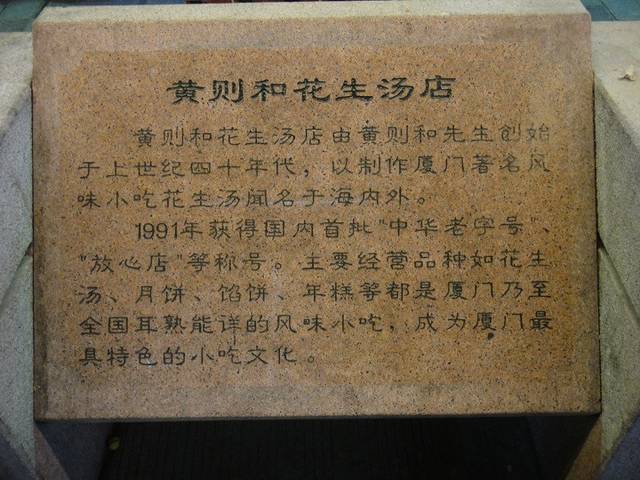 黄则和花生汤店
黄则和花生汤店由黄则和先生创始
于上世纪四十年代，以制作厦门著名风
味小吃花生汤闻名于海内外。
1991年获得国内首批"中华老字号"、
"放心店"等称号。主要经营品种如花生
汤、月饼、馅饼、年糕等都是厦门乃至
全国耳熟能详的风味小吃，成为厦门最
具特色的小吃文化。